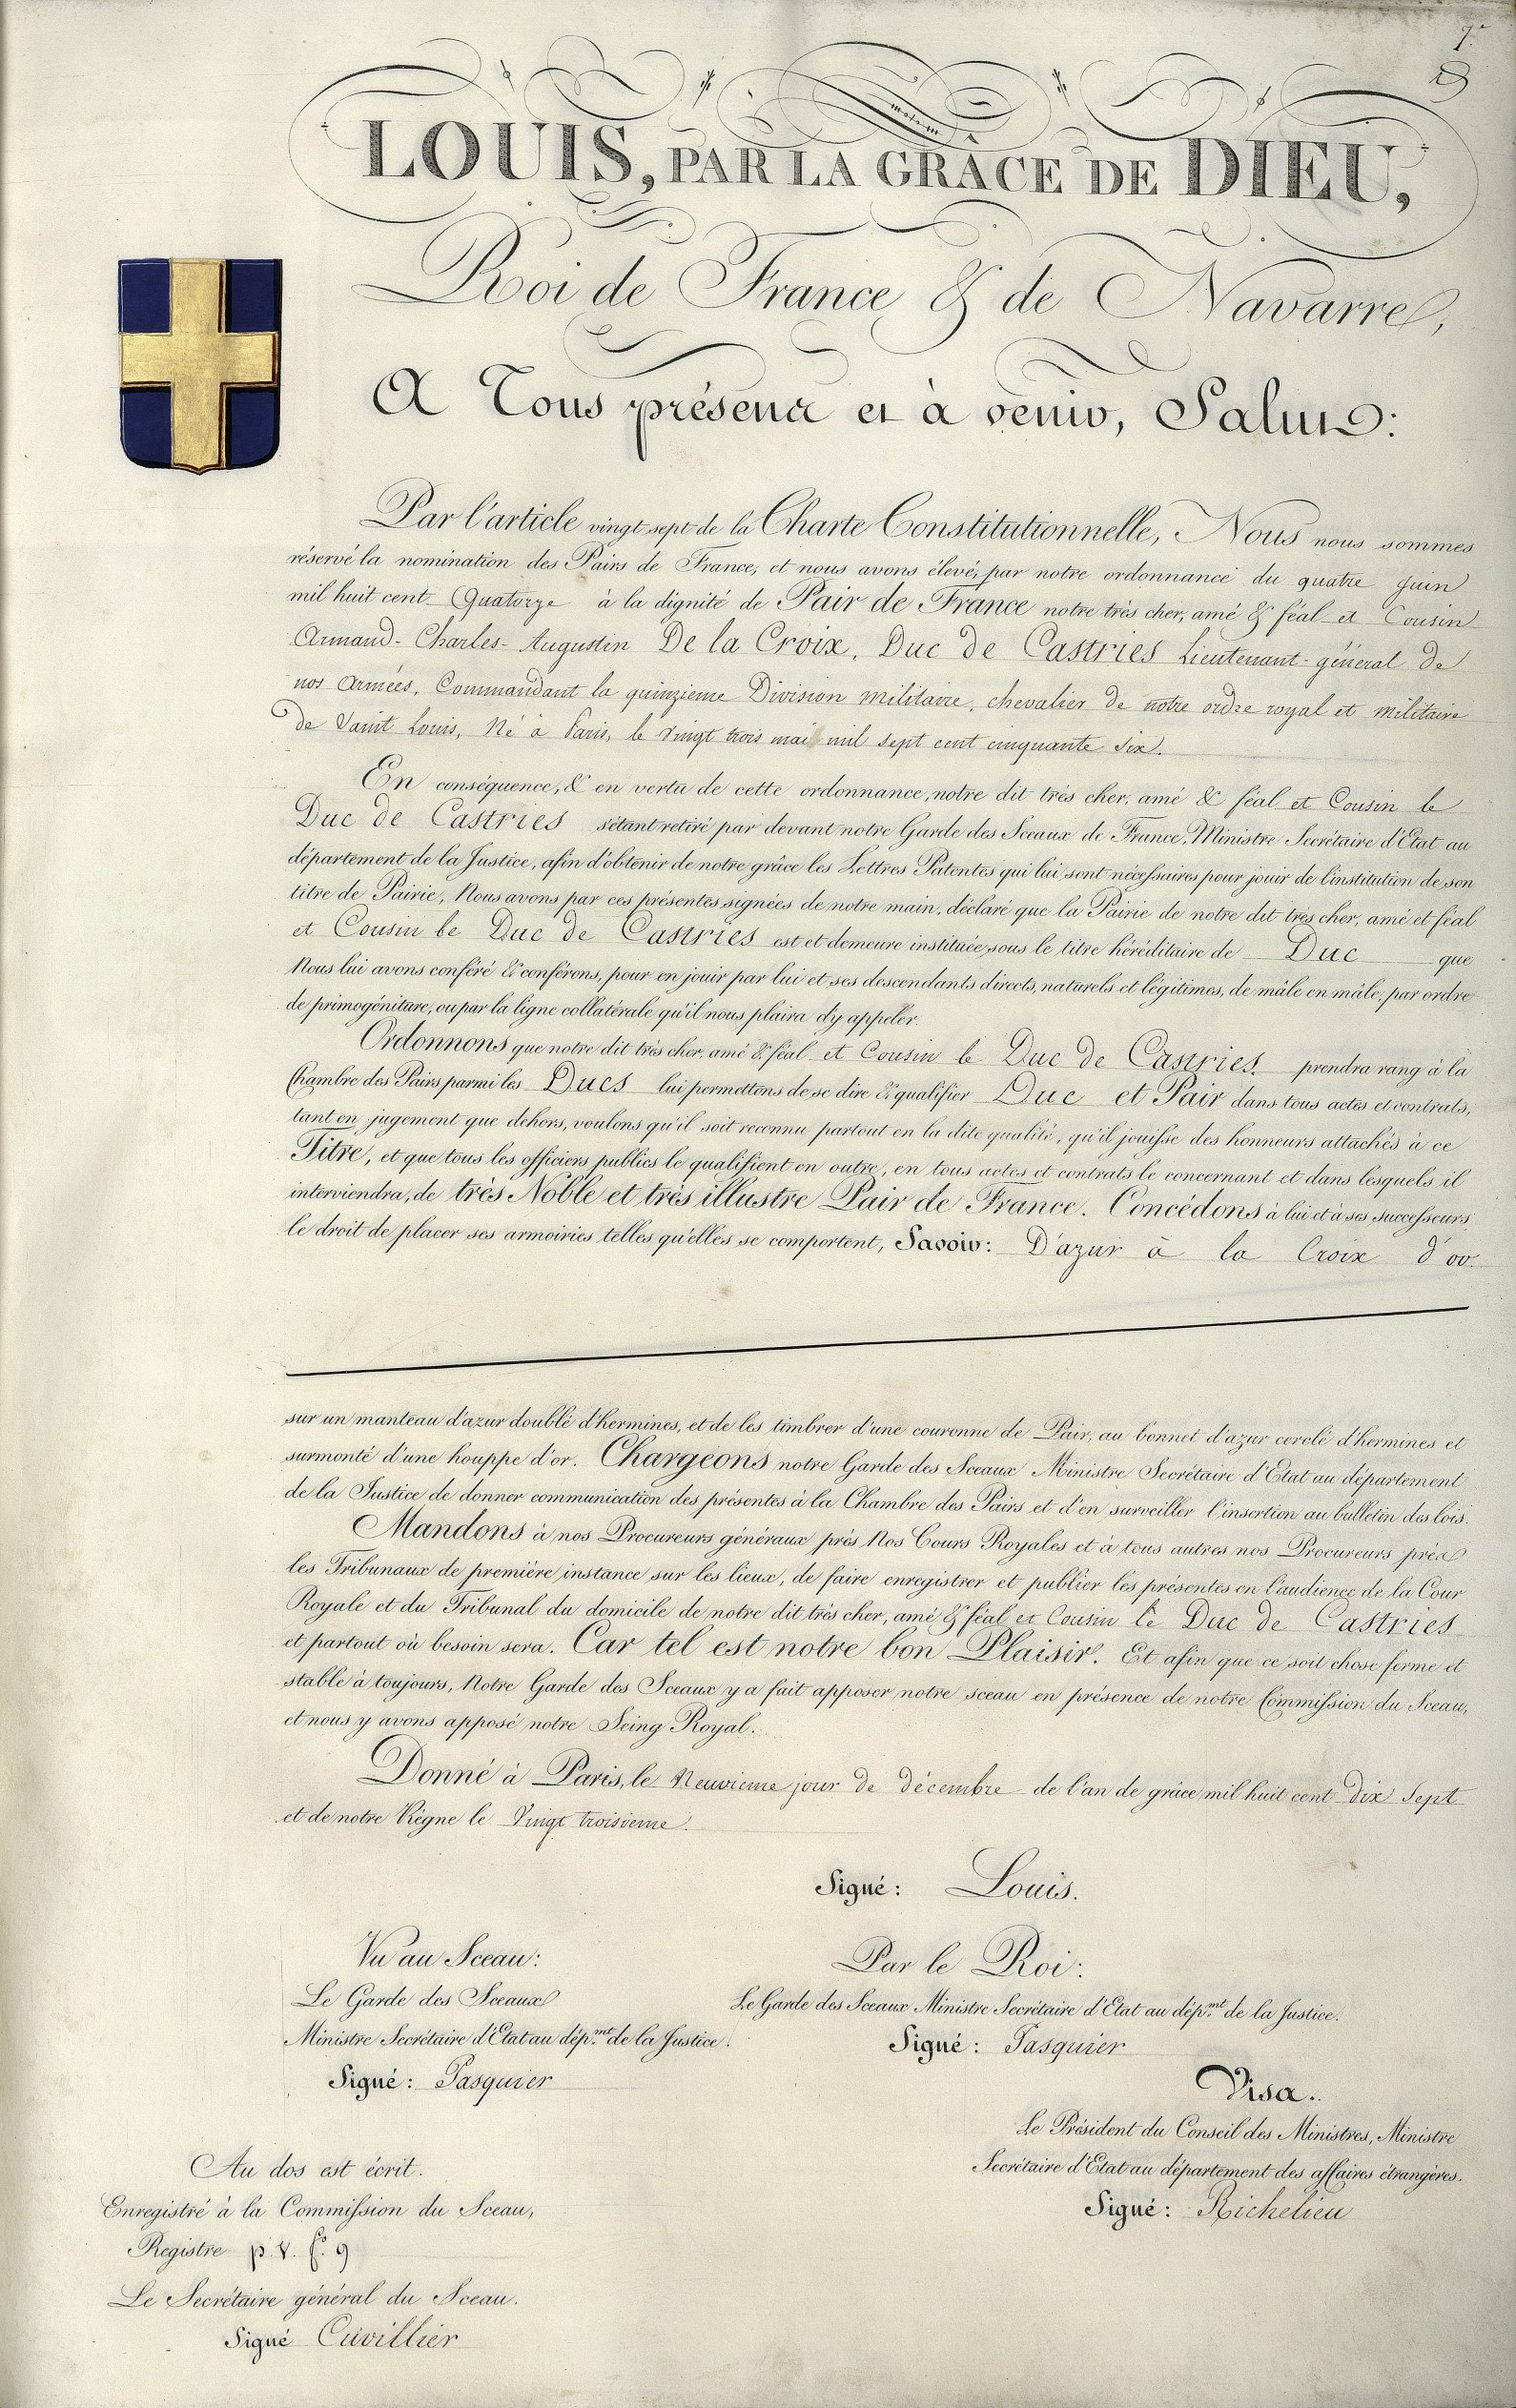 LOUIS, PAR LA GRÂCE DE DIEU,
Roi de France & de Navarre,
A Tous présens et à venir, Salut:
Par l'article vingt sept de la Charte Constitutionnelle, Nous nous sommes
réservé la nomination des Pairs de France, et nous avons élevé, par notre ordonnance du quatre Juin
mil huit cent Quatorze à la dignité de Pair de France notre très cher, amé & féal et Cousin
Armand-Charles-Augustin De la Croix, Duc de Castries Lieutenant-général de
nos Armées, Commandant la quinzieme Division militaire, chevalier de notre ordre royal et militaire
de Saint Louis, Né à Paris, le vingt trois mai mil sept cent cinquante six.
En conséquence, & en vertu de cette ordonnance, notre dit très cher, amé & féal et Cousin le
Duc de Castries s'étant retiré par devant notre Garde des Sceaux de France, Ministre Secrétaire d'Etat au
département de la Justice, afin d'obtenir de notre grâce les Lettres Patentes qui lui sont nécessaires pour jouir de l'institution de son
titre de Pairie, Nous avons par ces présentes signées de notre main, déclaré que la Pairie de notre dit très cher, amé et féal
et Cousin le Duc de Castries est et demeure instituée sous le titre héréditaire de Duc que
Nous lui avons conféré & conférons, pour en jouir par lui et ses descendants directs, naturels et légitimes, de mâle en mâle, par ordre
de primogéniture, ou par la ligne collatérale qu'il nous plaira d'y appeler.
Ordonnons que notre dit très cher, amé & féal et Cousin le Duc de Castries. prendra rang à la
Chambre des Pairs parmi les Ducs lui permettons de se dire & qualifier Duc et Pair dans tous actes et contrats,
tant en jugement que dehors, voulons qu'il soit reconnu partout en la dite qualité, qu'il jouisse des honneurs attachés à ce
Titre, et que tous les officiers publics le qualifient en outre, en tous actes et contrats le concernant et dans lesquels il
interviendra, de très Noble et très illustre Pair de France. Concédons à lui et à ses successeurs
le droit de placer ses armoiries telles qu'elles se comportent, Savoir: D'azur à la Croix d'or
sur un manteau d'azur doublé d'hermines, et de les timbrer d'une couronne de Pair, au bonnet d'azur cerclé d'hermines et
surmonté d'une houppe d'or. Chargeons notre Garde des Sceaux Ministre Secrétaire d'Etat au département
de la Justice de donner communication des présentes à la Chambre des Pairs et d'en surveiller l'insertion au bulletin des lois.
Mandons à nos Procureurs généraux près Nos Cours Royales et à tous autres nos Procureurs près
les Tribunaux de première instance sur les lieux, de faire enregistrer et publier les présentes en l'audience de la Cour
Royale et du Tribunal du domicile de notre dit très cher, amé & féal et Cousin le Duc de Castries
et partout où besoin sera. Car tel est notre bon Plaisir. Et afin que ce soit chose ferme et
stable à toujours, Notre Garde des Sceaux y a fait apposer notre sceau en présence de notre Commission du Sceau,
et nous y avons apposé notre Seing Royal.
Donné à Paris, le Neuvieme jour de décembre de l'an de grâce mil huit cent dix sept
et de notre Règne le Vingt troisieme.
Signé: Louis.
Vu au Sceau:
Le Garde des Sceaux
Ministre Secrétaire d'Etat au dép.mt de la Justice.
Signé: Pasquier
Par le Roi:
Le Garde des Sceaux Ministre Secrétaire d'Etat au dép.mt de la Justice.
Signé: Pasquier
Visa.
Le Président du Conseil des Ministres, Ministre
Secrétaire d'Etat au département des affaires étrangères.
Signé: Richelieu
Au dos est écrit.
Enregistré à la Commission du Sceau,
Registre p. V. f.o 9
Le Secrétaire général du Sceau.
Signé Cuvillier